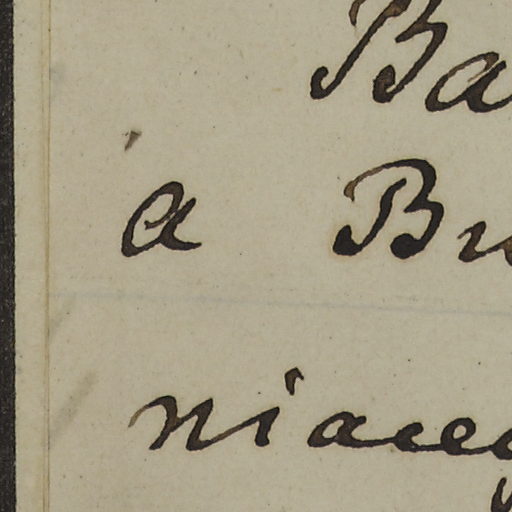 Ba
a Bu
niaceg